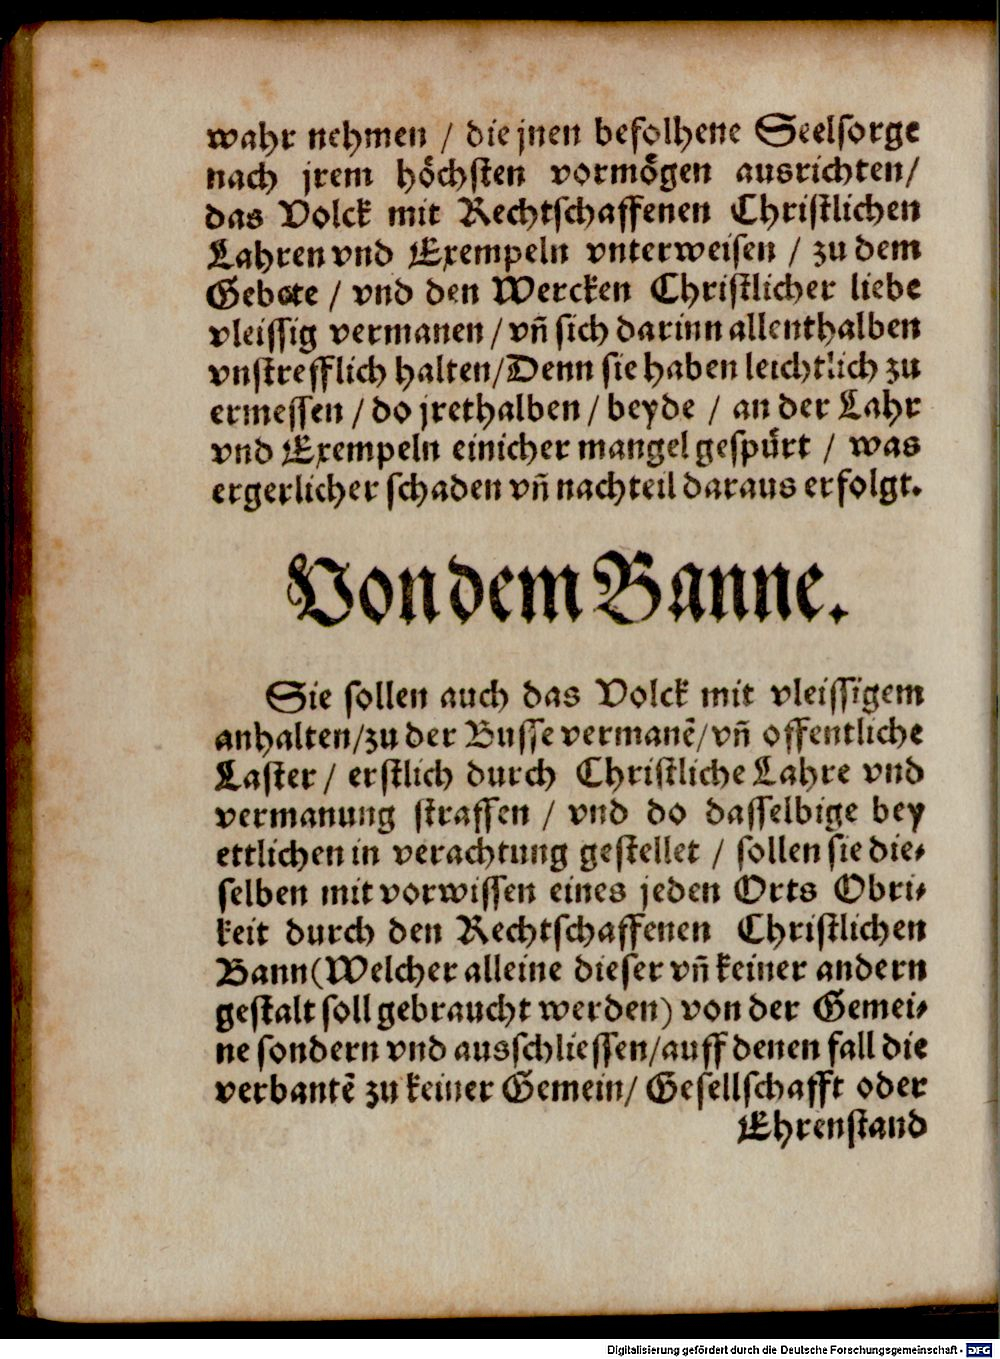 wahr nehmen / die jnen befolhene Seelsorge
nach jrem höchsten vormögen ausrichten/
das Volck mit Rechtschaffenen Christlichen
Lahren vnd Exempeln vnterweisen / zu dem
Gebete / vnd den Wercken Christlicher liebe
vleissig vermanen / vñ sich darinn allenthalben
vnstrefflich halten/Denn sie haben leichtlich zu
ermessen / do jrethalben / beyde / an der Lahr
vnd Exempeln einicher mangel gespürt / was
ergerlicher schaden vñ nachteil daraus erfolgt.
Von dem Banne.
Sie sollen auch das Volck mit vleissigem
anhalten/zu der Busse vermanē/vñ offentliche
Laster / erstlich durch Christliche Lahre vnd
vermanung straffen / vnd do dasselbige bey
ettlichen in verachtung gestellet / sollen sie die⸗
selben mit vorwissen eines jeden Orts Obri⸗
keit durch den Rechtschaffenen Christlichen
Bann(Welcher alleine dieser vñ keiner andern
gestalt soll gebraucht werden) von der Gemei⸗
ne sondern vnd ausschliessen/auff denen fall die
verbantē zu keiner Gemein/ Gesellschafft oder
Ehrenstand
Digitalisierung gefördert durch die Deutsche Forschungsgemeinschaft - DFG